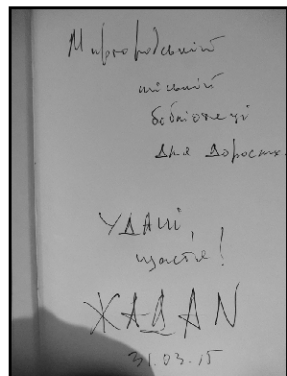 Миргородській
міській
бібліотеці
для дорослих.
УДАЧІ,
щастя!
ЖАДАN
31.03.15